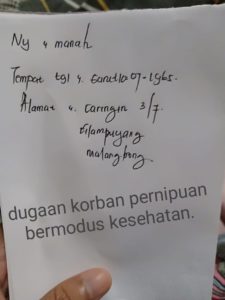 Ny : manah
Tempat tgl : Garut 10-07-1965.
Alamat : Caringin 3/7.
Cilampuyang
malangbong
dugaan korban pernipuan
bermodus kesehatan.